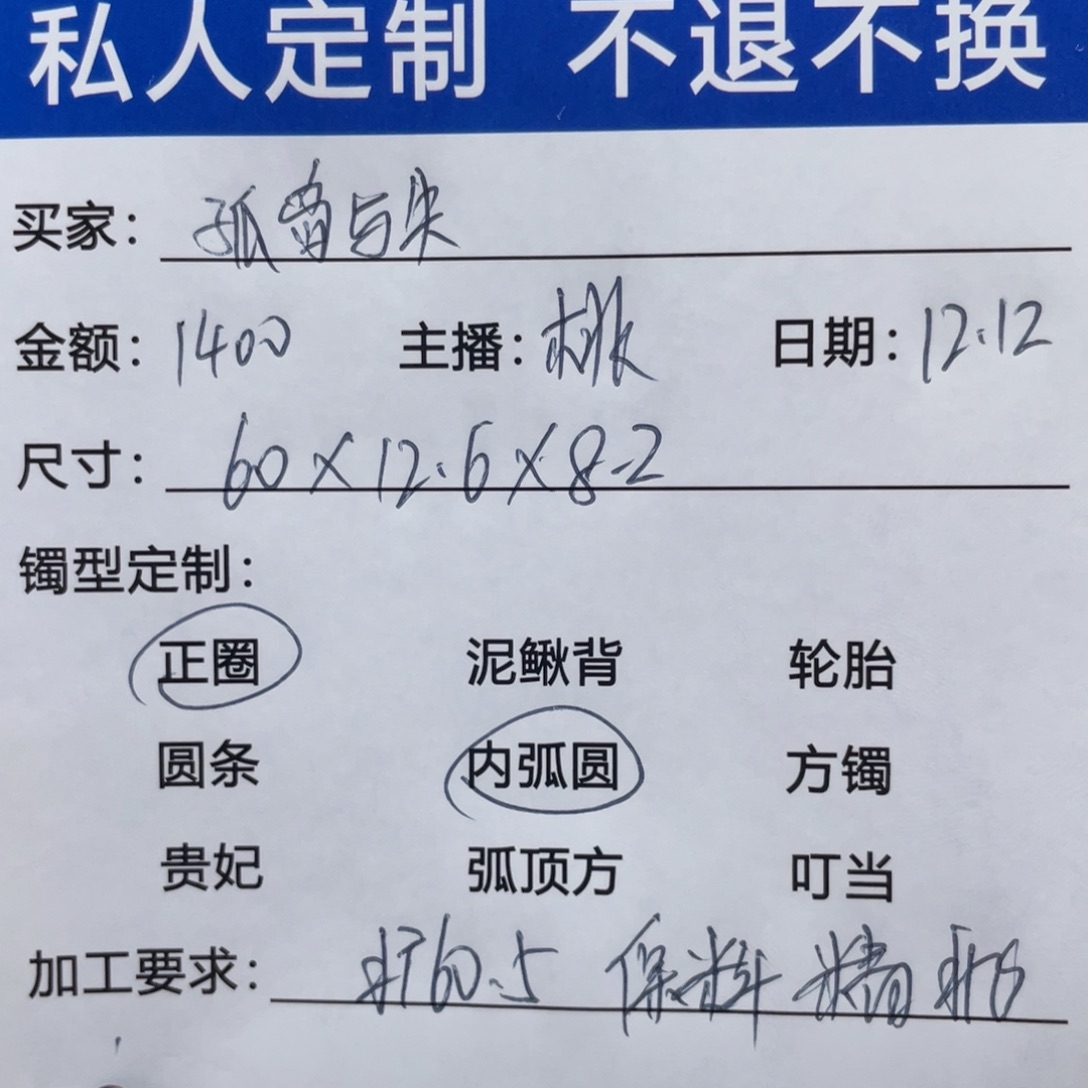 私人定制 不退不换
买家：孤 与
金额：1400 主播：桃 日期：12.12
尺寸：60×12.6×8.2
镯型定制：
正圈 泥鳅背 轮胎
圆条 内弧圆 方镯
贵妃 弧顶方 叮当
加工要求：扩60.5 保料 精